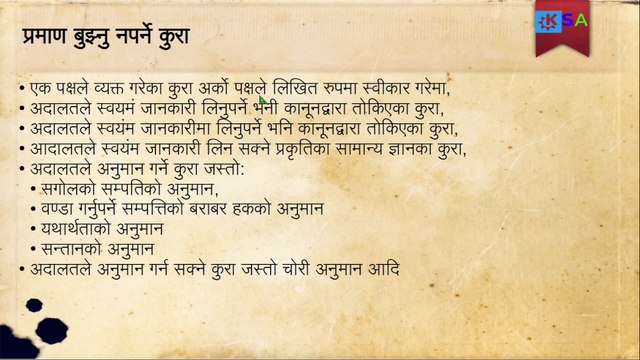 प्रमाण बुझ्नु नपर्ने कुरा
KSA
• एक पक्षले व्यक्त गरेका कुरा अर्को पक्षले लिखित रुपमा स्वीकार गरेमा,
• अदालतले स्वयमं जानकारी लिनुपर्ने भनी कानूनद्वारा तोकिएका कुरा,
• अदालतले स्वयंम जानकारीमा लिनुपर्ने भनि कानूनद्वारा तोकिएका कुरा,
• आदालतले स्वयंम जानकारी लिन सक्ने प्रकृतिका सामान्य ज्ञानका कुरा,
• अदालतले अनुमान गर्ने कुरा जस्तो:
• सगोलको सम्पतिको अनुमान,
• वण्डा गर्नुपर्ने सम्पत्तिको बराबर हकको अनुमान
• यथार्थताको अनुमान
• सन्तानको अनुमान
• अदालतले अनुमान गर्न सक्ने कुरा जस्तो चोरी अनुमान आदि